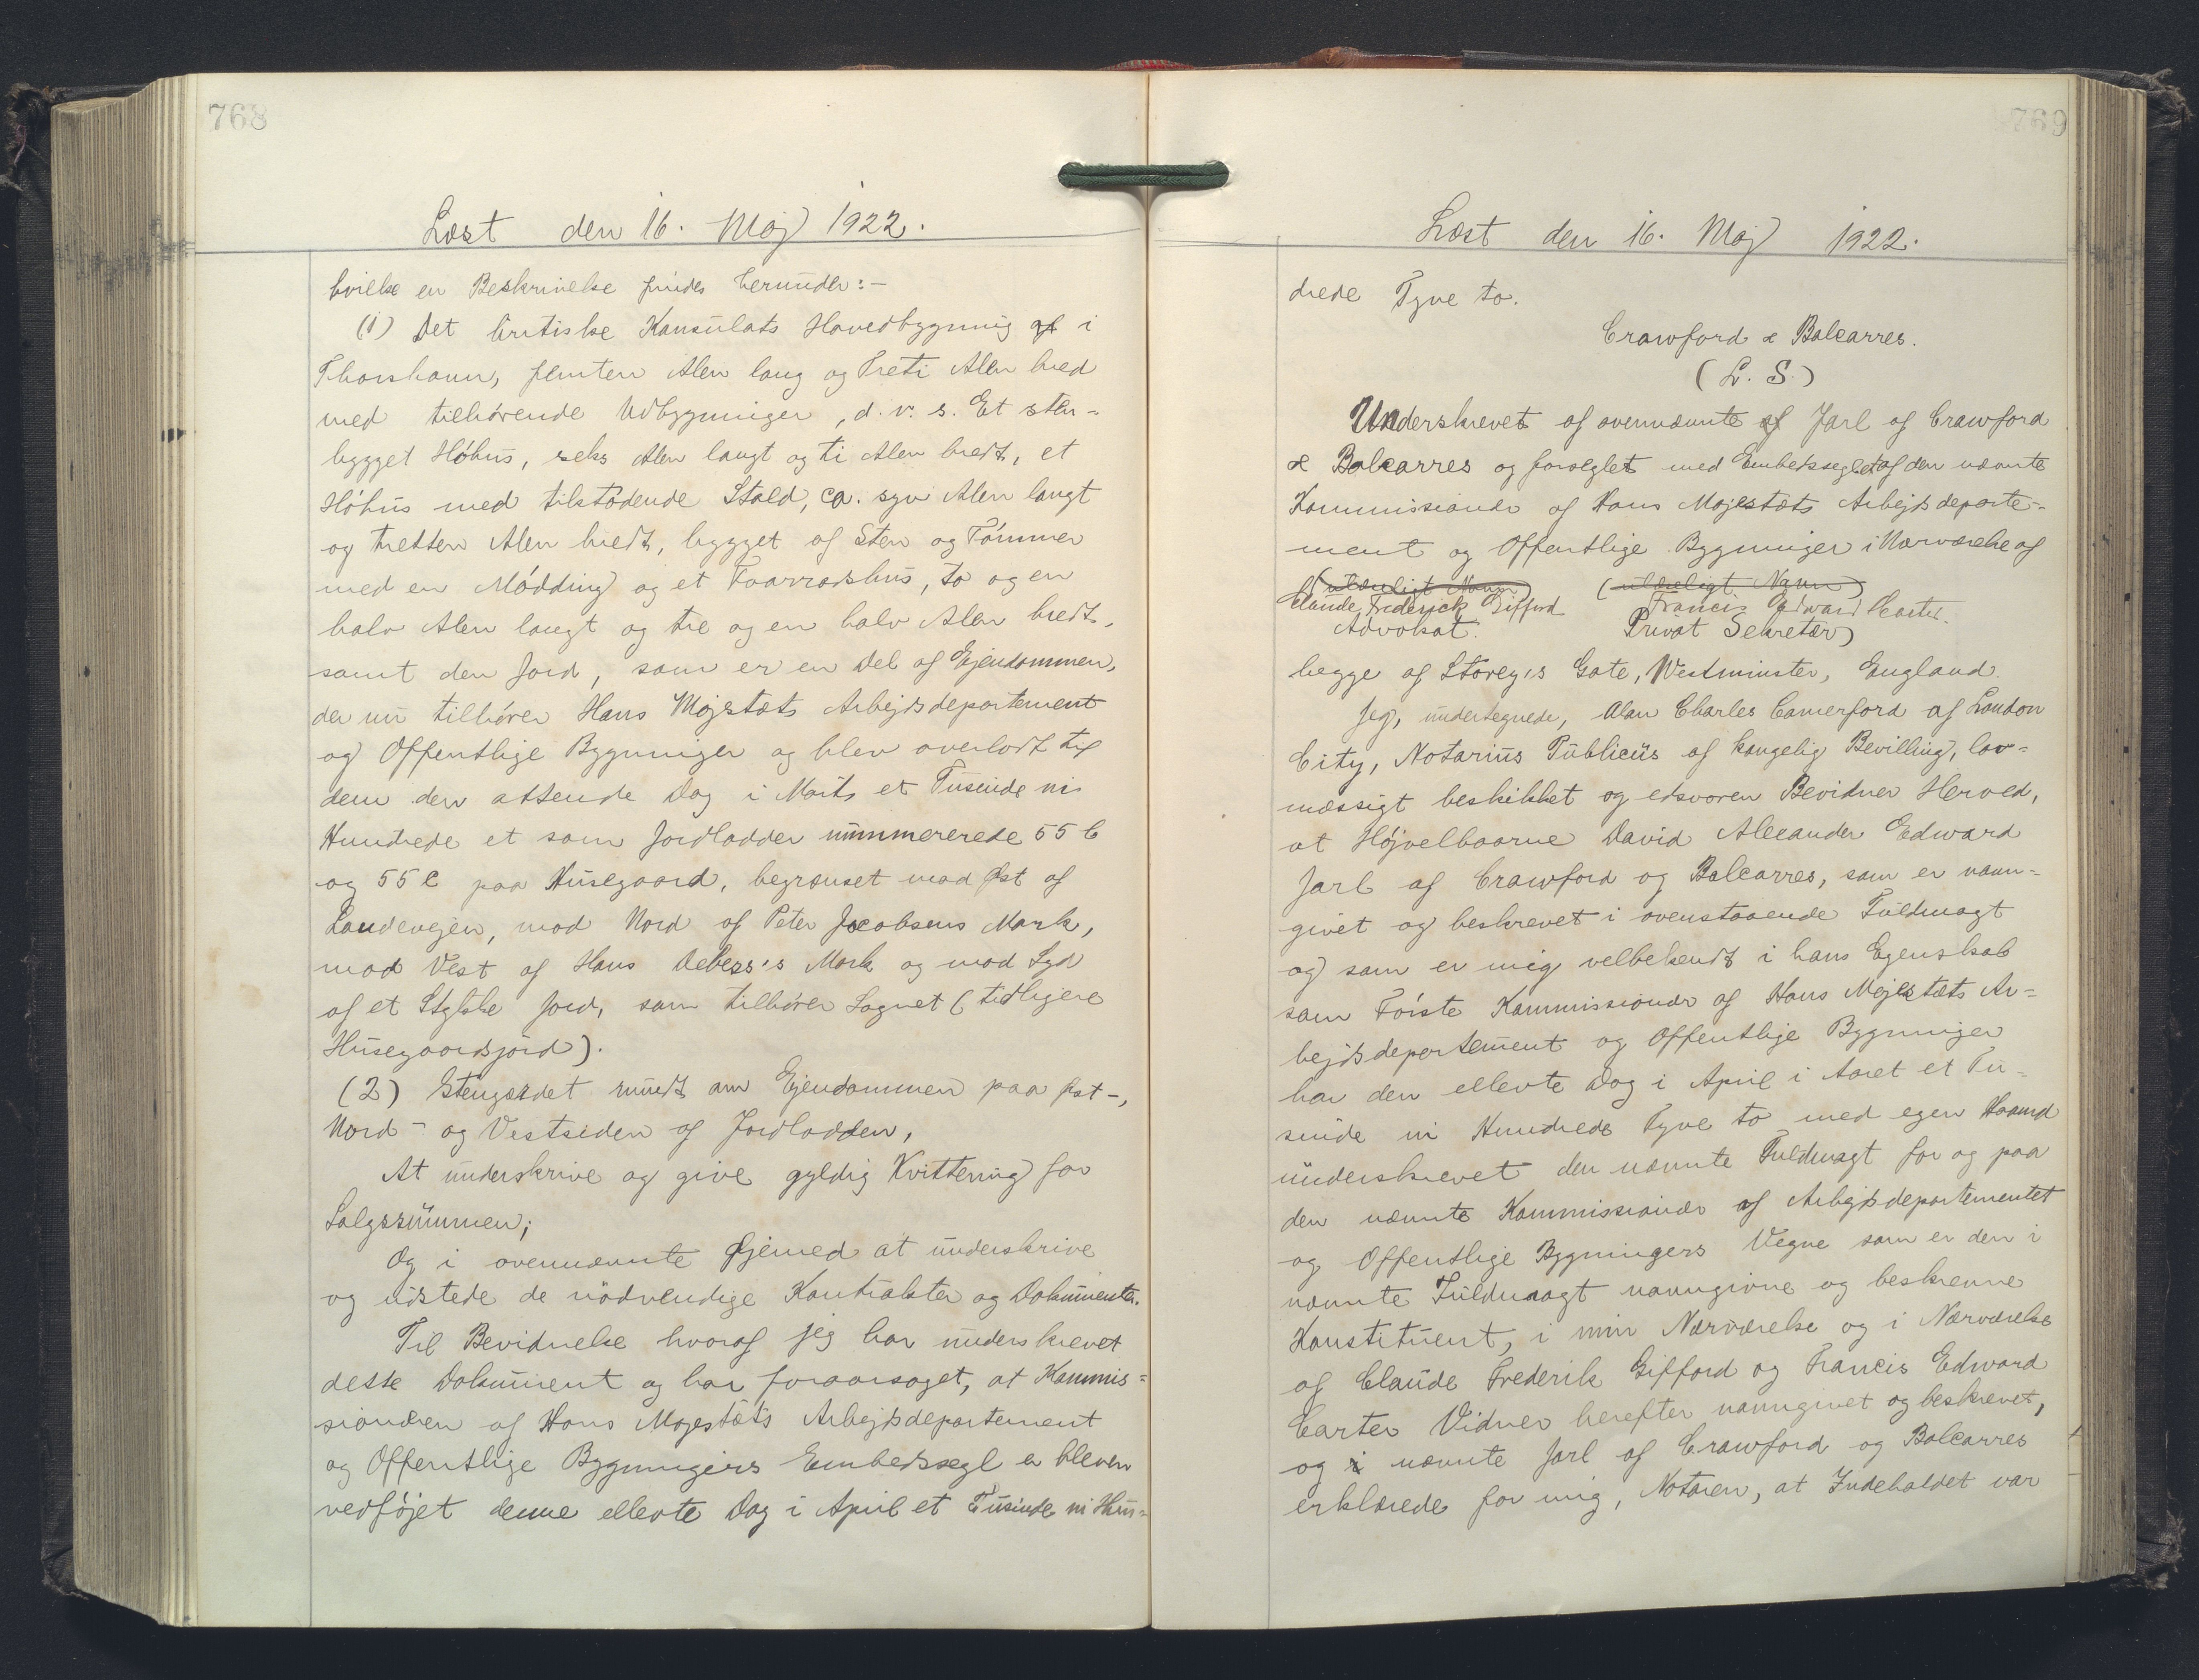 768
Læst den 16. Maj 1922.
hvilke en Beskrivelse findes herunder:-
(1) Det britiske Konsulats Hovedbygning af i
Thorshavn, femten Alen lang og Treti Alen bred
med tilhørende Udbygninger, d.v.s. Et sten-
bygget Høhus, seks Alen langt og ti Alen bredt, et
Høhus med tilstødende Stald, ca. syv Alen langt
og tretten Alen bredt, bygget af Sten og Tømmer
med en Mødding og et Foarradshus, to og en
halv Alen langt og tre og en halv Alen bredt,
samt den Jord, som er en Del af Ejendommen,
der nu tilhører Hans Majstæts Arbejdsdepartement
og Offentlige Bygninger og blev overladt til
dem den attende Dag i Marts et Tusinde ni
Hundrede et som Jordlodder nummererede 55 b
og 55 c paa Husegaard, begrænset mod Øst af
Landevejen, mod Nord af Peter Jacobsens Mark,
mod Vest af Hans Debess's Mark og mod Syd
af et Stykke Jord, som tilhører Sognet (tidligere
Husegaardsjord).
(2) Stengærdet rundt om Ejendommen paa Øst-,
Nord- og Vestsiden af Jordlodden,
At underskrive og give gyldig Kvittering for
Salgssummen;
Og i ovennævnte Øjemed at underskrive
og udstede de nødvendige Kontrakter og Dokumenter.
Til Bevidnelse hvoraf jeg har underskrevet
dette Dokument og har foraarsaget, at Kommis=
sionæren af Hans Majestæts Arbejdsdepartement
og Offentlige Bygningers Embedssegl er bleven
vedføjet denne ellevte Dag i April et Tusinde ni Hun=
769
Læst den 16. Maj 1922.
drede Tyve to.
Crawford & Balcarres.
(L. S.)
Underskrevet af ovennævnte af Jarl af Crawford
& Balcarres og forseglet med Embedsseglet af den nævnte
Kommissionær af Hans Majestæts Arbejdsdeparte=
ment og Offentlige Bygninger i Nærværelse af
(ulæseligt Navn) (ulæseligt Navn)
Claude Frederick Gifford Francis Edward Carter.
Advokat. Privat Sekretær
begge af Storey's Gate, Westminster, England.
Jeg, undertegnede, Alan Charles Comerford af London
City, Notarius Publicus af kongelig Bevilling, lov=
mæssigt beskikket og edsvoren Bevidner Herved,
at Højvelbaarne David Alexander Edward
Jarl af Crawford og Balcarres, som er navn=
givet og beskrevet i ovenstaaende Fuldmagt
og som er mig velbekendt i hans Egenskab
som Første Kommissionær af Hans Majestæts Ar=
bejdsdepartement og Offentlige Bygninger
har den ellevte Dag i April i Aaret et Tu=
sinde ni Hundrede Tyve to med egen Haand
underskrevet den nævnte Fuldmagt for og paa
den nævnte Kommissionær af Arbejdsdepartementet
og Offentlige Bygningers Vegne som er den i
nævnte Fuldmagt navngivne og beskrevne
Konstituent, i min Nærværelse og i Nærværelse
af Claude Frederik Gifford og Francis Edward
Carter Vidner herefter navngivet og beskrevet,
og i nævnte Jarl af Crawford og Balcarres
erklærede for mig, Notaren, at Indeholdet var